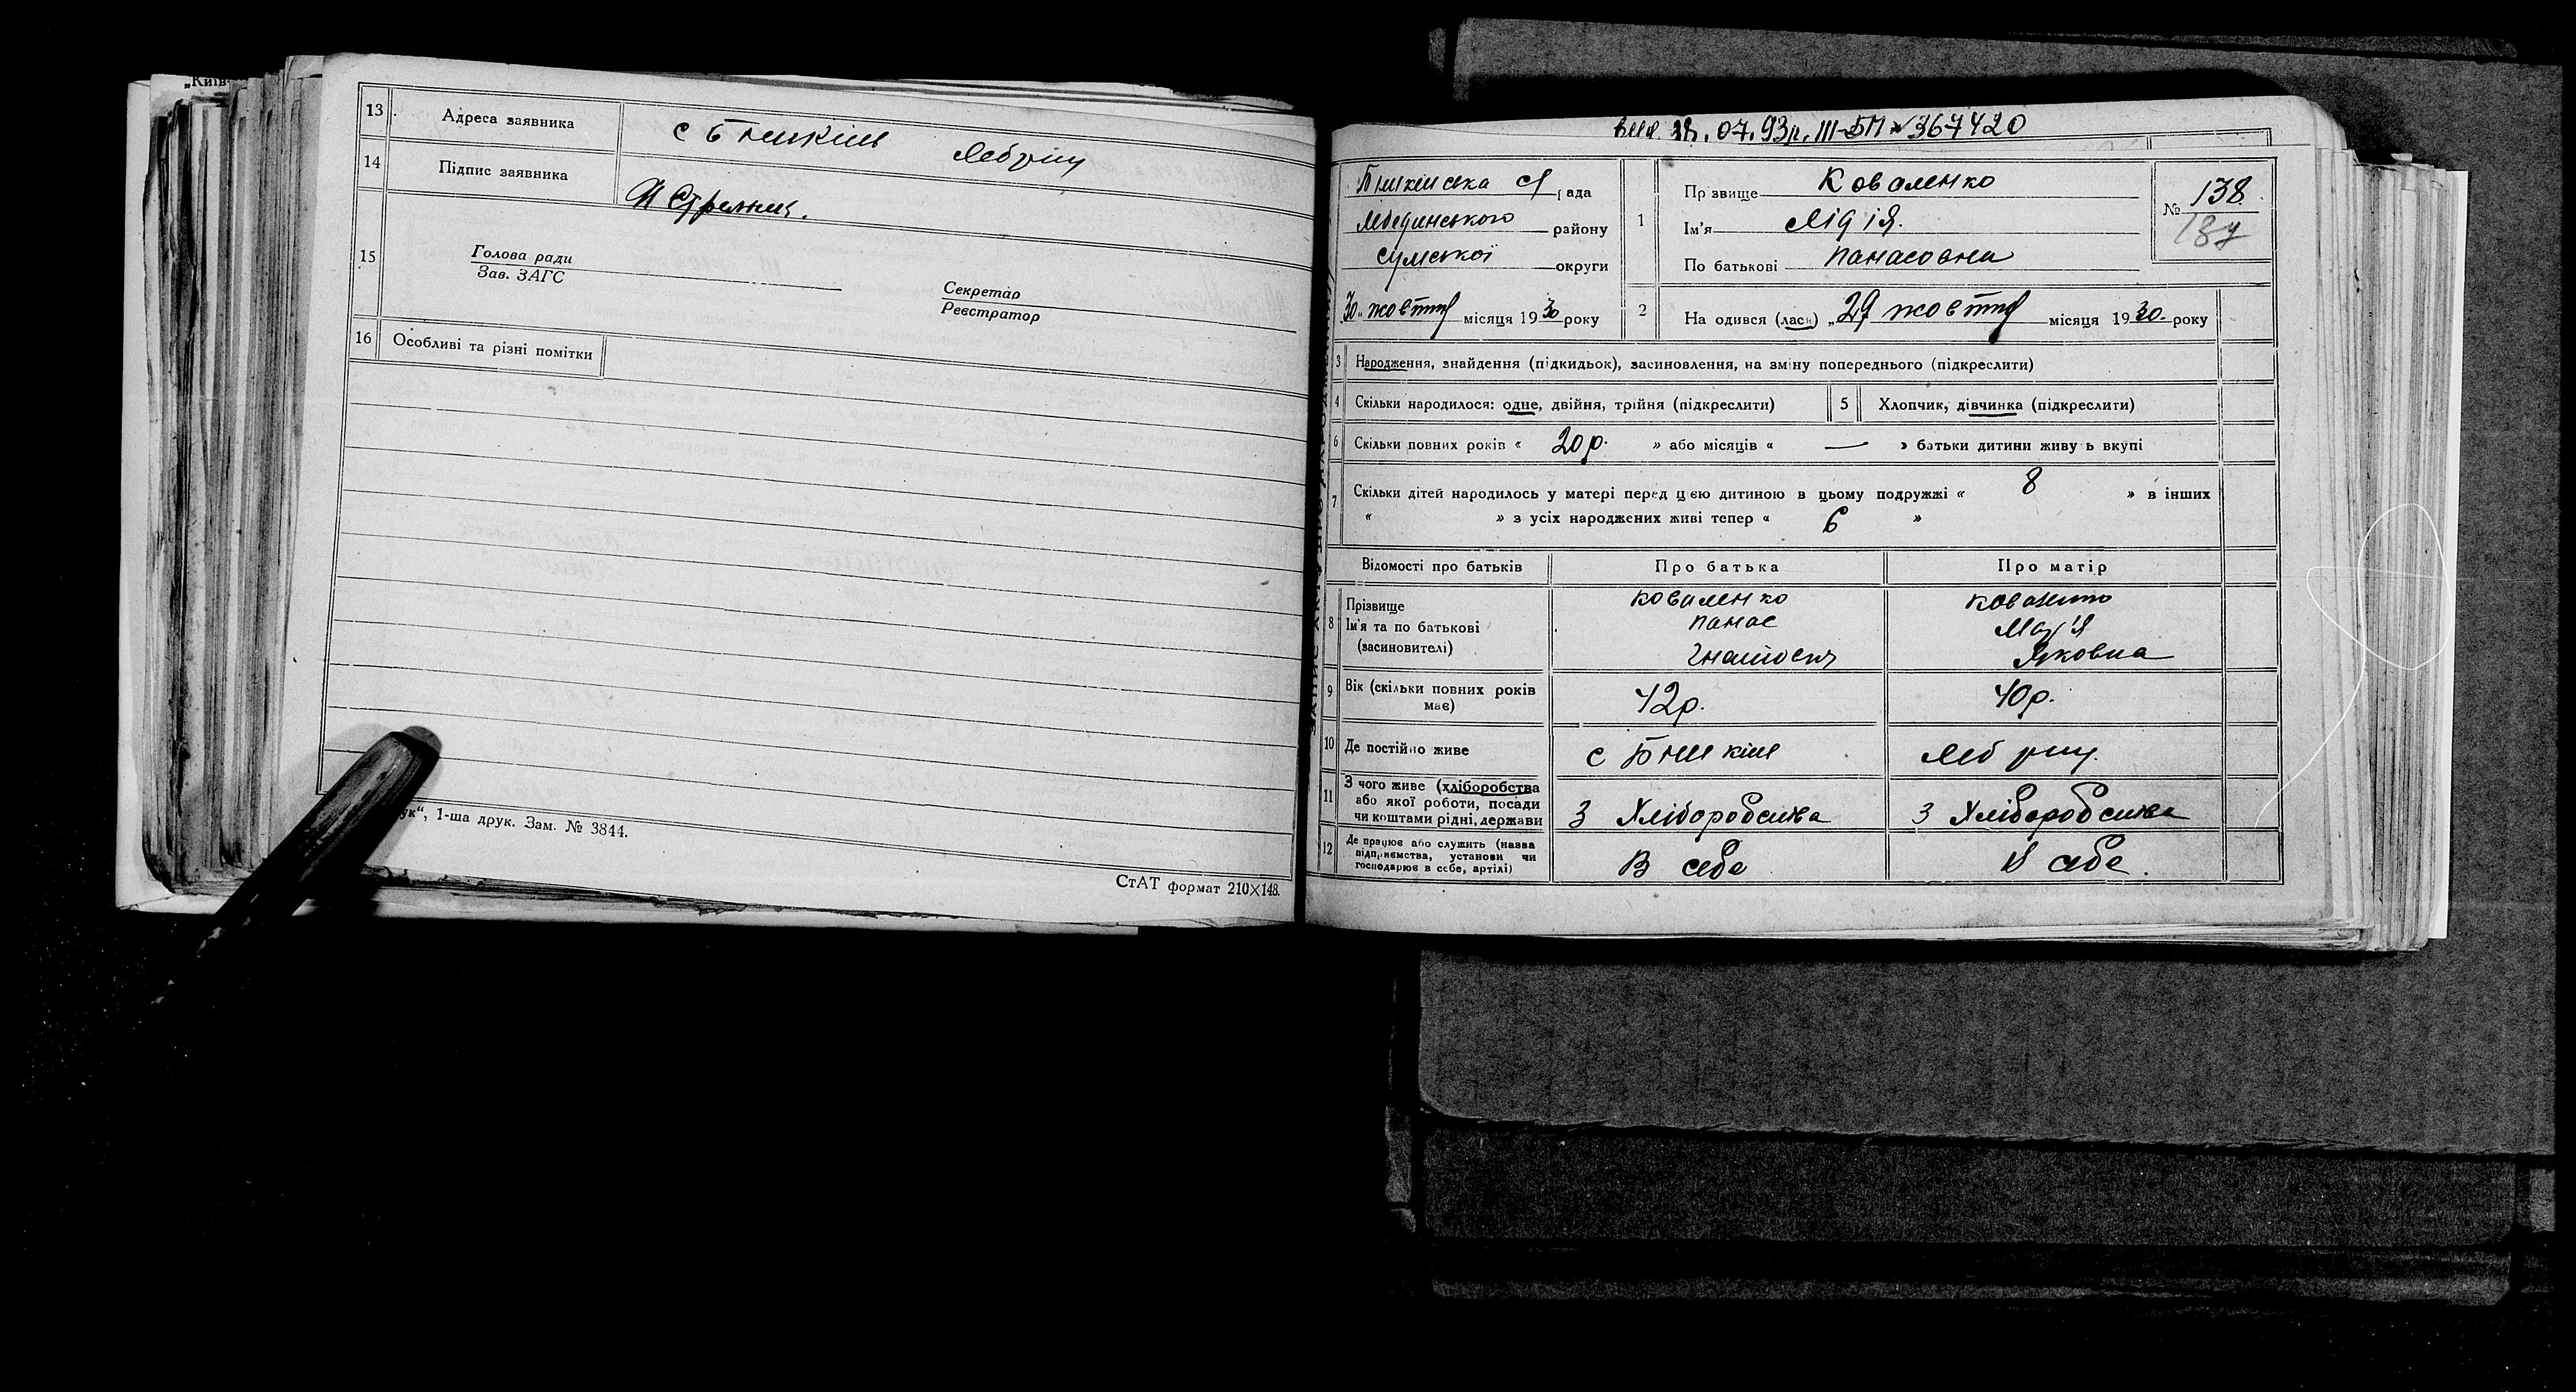 „Київ-
13 Адреса заявника с Бишкінь Леб рну
14 Підпис заявника
15 Голова ради
Зав. ЗАГС
Секретар
Реєстратор
16 Особливі та різні помітки
ук“, 1-ша друк. Зам. № 3844.
СтАТ формат 210×148.
07.93р. III-БП № 367420
Бишкінська с/рада
Лебединського району
Сумської округи
„30„ жовтня місяця 1930 року
1 Прізвище Коваленко
Ім'я Лідія.
По батькові Панасовна
№ 138
137
2 Народився (лась) „29 жовтня місяця 1930. року
3 Народження, знайдення (підкидьок), засиновлення, на зміну попереднього (підкреслити)
4 Скільки народилося: одне, двійня, трійня (підкреслити) 5 Хлопчик, дівчинка (підкреслити)
6 Скільки повних років « 20 р. » або місяців « — » батьки дитини живуть вкупі
7 Скільки дітей народилось у матері перед цією дитиною в цьому подружжі « 8 » в інших
« » з усіх народжених живі тепер « 6 »
Відомості про батьків Про батька Про матір
8 Прізвище Коваленко Коваленко
Ім'я та по батькові Панас Мар'я
(засиновителі) Гнатович Яковна
9 Вік (скільки повних років має) 42р. 40р.
10 Де постійно живе с Бишкінь Леб рну.
11 З чого живе (хліборобства
або якої роботи, посади
чи коштами рідні, держави З Хліборобства З Хліборобства
12 Де працює або служить (назва
підприємства, установи чи
господарює в себе, артілі) В себе В себе.